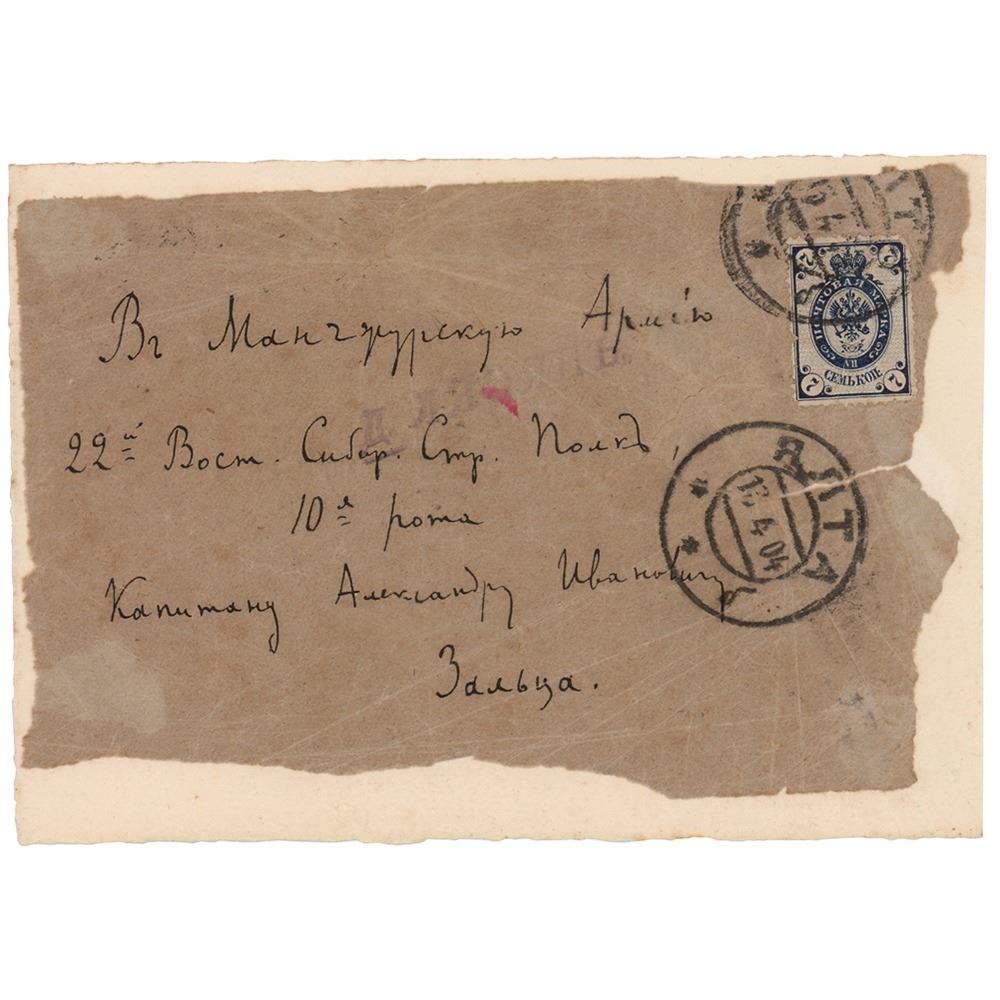 Въ Манчжурскую Армію
22й Вост. Сибир. Стр. Полкъ,
10я рота
Капитану Александру Ивановичу
Зальца.
7 7
ПОЧТОВАЯ МАРКА
VII
СЕМЬ КОП.
7 7
ЯЛТА
4 04